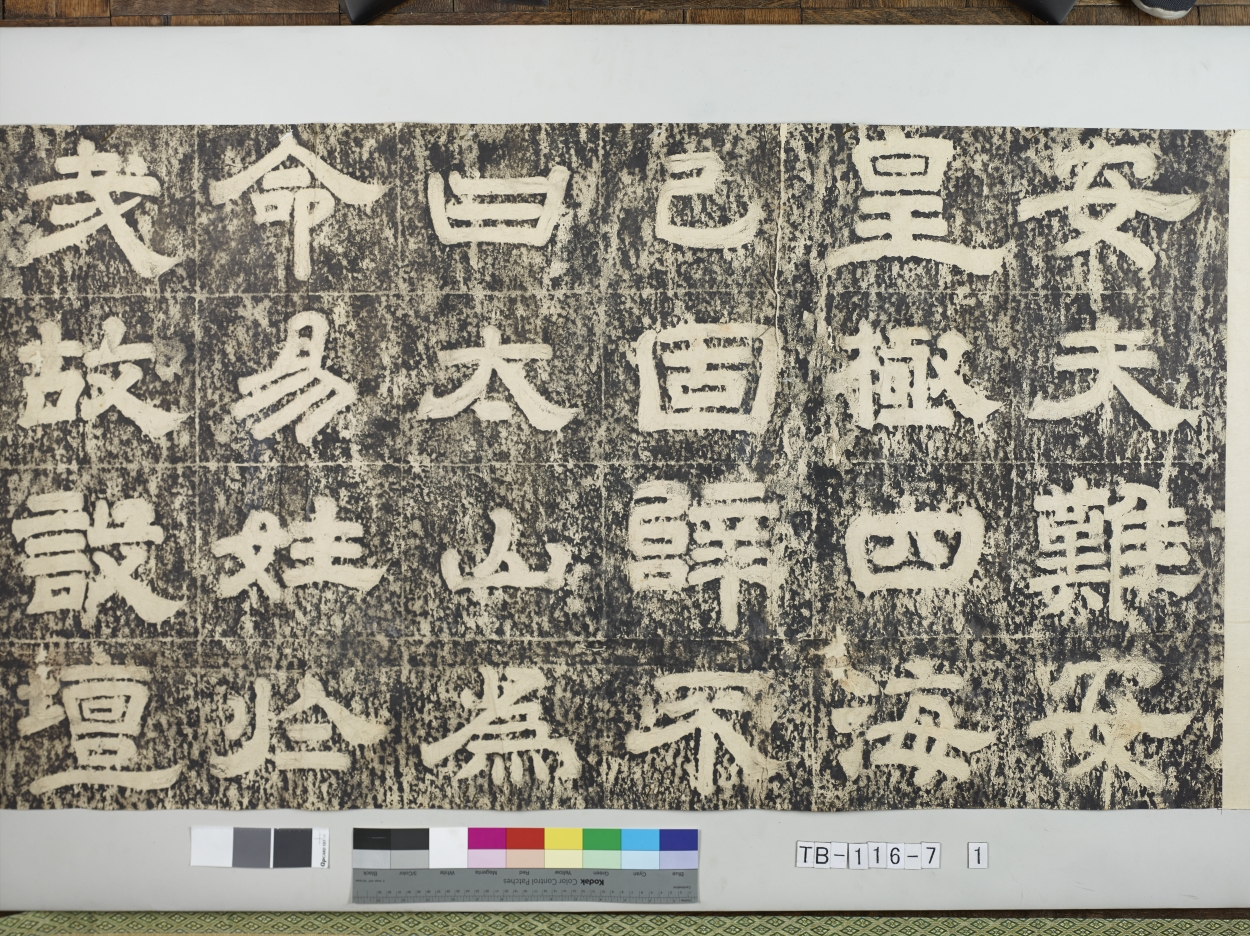 安夫難安
皇極四海
己固辭不
曰太山為
命易姓於
故設壇
Blue Cyan Green Yellow Red Magenta White 3/Color Black
Kodak Color Control Patches
TB-116-7 1